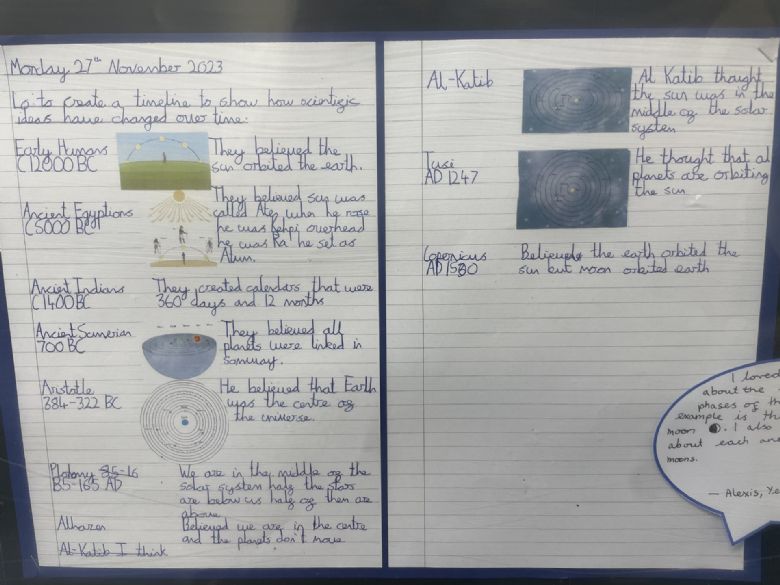 Monday 27th November 2023
Lo to create a timeline to show how scientific
ideas have changed over time.
Early Humans
C12000 BC
They believed the
sun orbited the earth.
Ancient Egyptions
C5000 BC
They believed sun was
called Aten when he rose
he was Kehpi overhead
he was Ra he set as
Atum.
Anciet Indians
C1400 BC
They created calendars that were
360 days and 12 months
Ancient Sumerian
700 BC
They believed all
planets were linked in
someway.
Aristotle
384-322 BC
He believed that Earth
was the centre of
the universe.
Ptolomy 85-16
85-165 AD
We are in the middle of the
solar system half the stars
are below us half of them are
above
Alhazen
Believed we are in the centre
and the planets don't move
Al-Katib I think
Al-Katib
Al Katib thought
the sun was in the
middle of the solar
system
Tusi
AD 1247
He thought that al
planets are orbiting
the sun
Copernicus
AD 1530
Believed the earth orbited the
sun but moon orbited earth
I loved
about the
phases of th
example is the
moon. I also
about each and
moons.
– Alexis, Ye